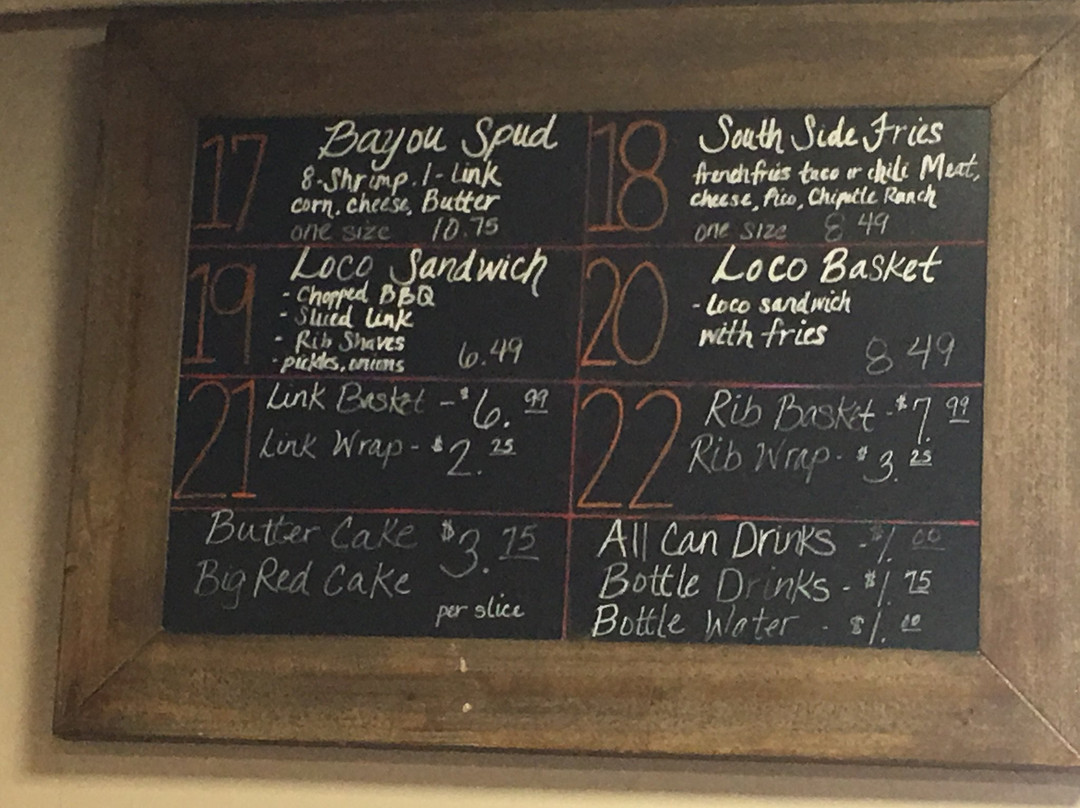 17
Bayou Spud
8-Shrimp. 1-Link
corn, cheese, Butter
one size 10.75
18
South Side Fries
french fries taco or chili Meat,
cheese, Pico, Chipotle Ranch
one size 8 49
19
Loco Sandwich
- Chopped BBQ
- Sliced Link
- Rib Shaves
- pickles, onions 6.49
20
Loco Basket
- Loco sandwich
with fries
8 49
21
Link Basket - $6.99
Link Wrap - $2.25
22
Rib Basket - $7.99
Rib Wrap - $3.25
Butter Cake $3.75
Big Red Cake
per slice
All Can Drinks - $1.00
Bottle Drinks - $1.75
Bottle Water - $1.00